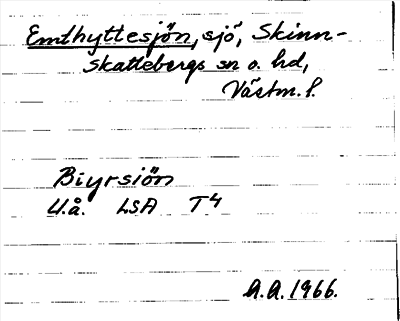 Emthyttesjön, sjö, Skinn-
skattebergs sn o. hd,
Västm. l.
Biyrsiön
U.å. LSA T4
A.A. 1966.